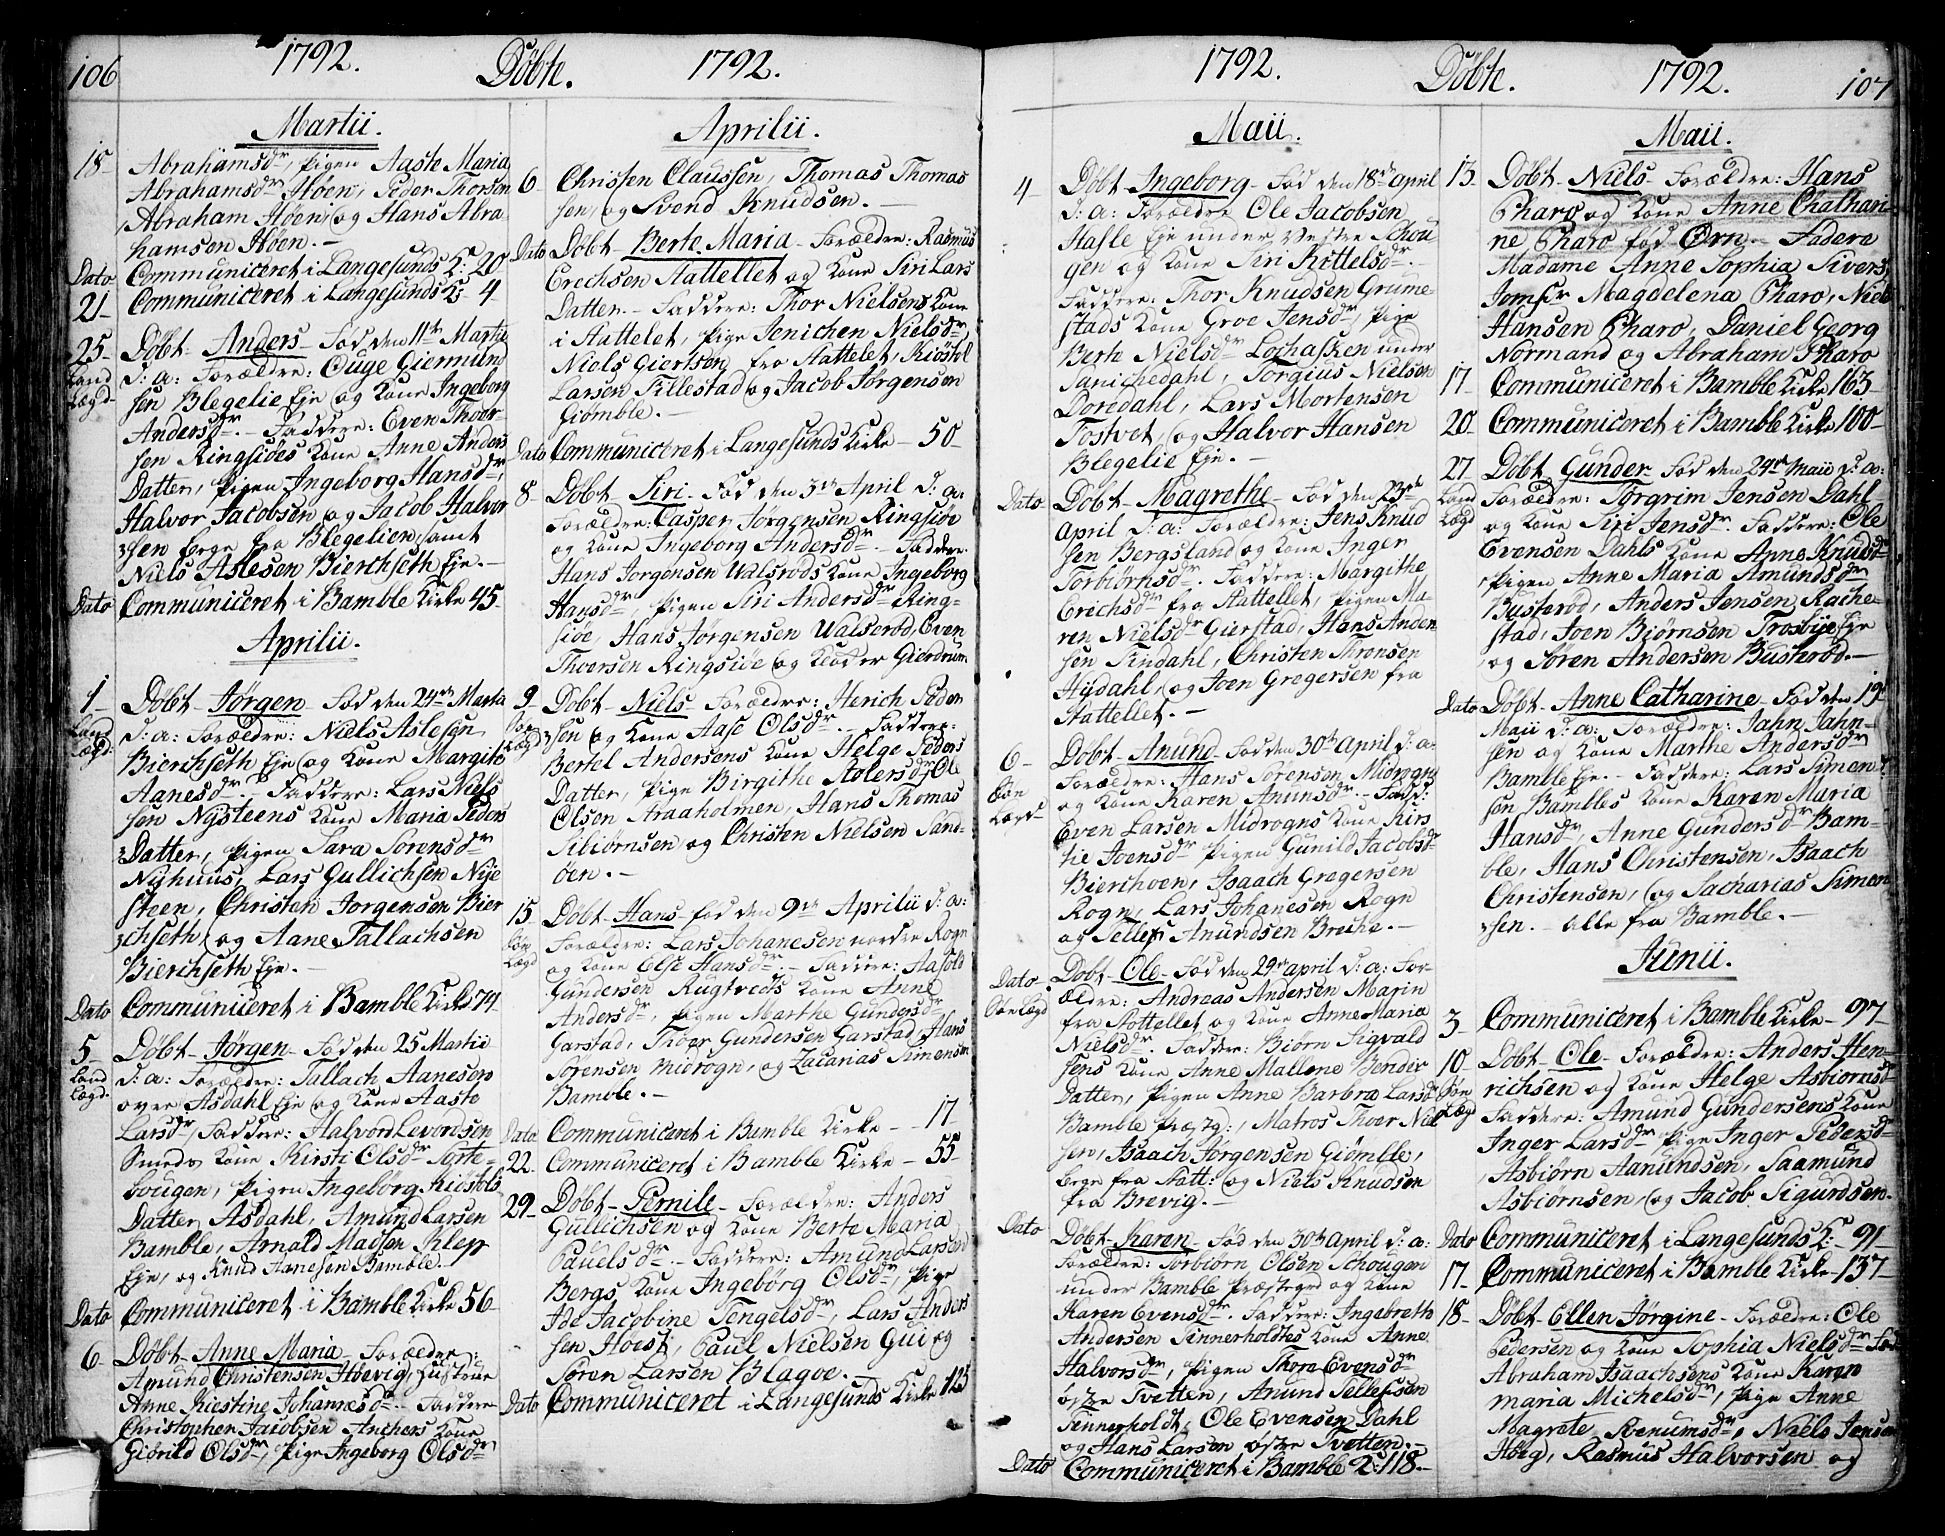 106
1792.
Døbte.
1792.
Martii.
18 Abrahamsdr, Pigen Aaste Maria
Abrahamsdr Høen, Peder Thorsen
Abraham Høen, og Hans Abra-
hamsen Høen.-
Dato Communiceret i Langesunds K: 20
21- Communiceret i Langesunds K: 4-
25- Land Lægd- Døbt- Anders- Fød den 11te Martii
d: a: Forældre: Ouge Giermund
sen Blegelie Eje og Kone Ingeborg
Andersdr.- Faddere: Even Thoer-
sen Ringsiøes Kone Anne Anders
Datter, Pigen Ingeborg Hansdr,
Halvor Jacobsen og Jacob Halvor
sen begge fra Blegelien, samt
Niels Aslesen Bierchseth Eje.-
Dato Communiceret i Bamble Kirke 45-
Aprilii.
1- Land Lægd: Døbt- Jørgen- Fød den 24de Martii
d: a: Forældre: Niels Aslesen
Bierchseth Eje og Kone Margith
Aanesdr.- Faddere: Lars Niels
sen Nysteens Kone Maria Peders
Datter, Pigen Sara Sørensdr
Nyhuus, Lars Gullichsen Nye
steen, Christen Jørgensen Bier
chseth og Aane Tallachsen
Bierchseth Eje.-
Dato Communiceret i Bamble Kirke 74-
5- Land Lægd- Døbt- Jørgen- Fød den 25 Martii
d: a: Forældre: Tallach Aanesen
øvre Asdahl Eje og Kone Aaste
Larsdr, Faddere: Halvord Levordsen
Smeds Kone Kirsti Olsdr
bougen, Pigen Ingeborg Kiøstols
Datter Asdahl, Amund Larsen
Bamble, Arnold Madsen Klep
Eje, og Knud Aanesen Bamble.-
Dato Communiceret i Bamble Kirke 56-
6- Døbt- Anne Maria- Forældre:
Amund Christensen Høevig, Hustrue
Anne Kiestine Johannesdr. Faddere
Christopher Jacobsen Anchers Kone
Giørild Olsdr, Pige Ingeborg Olsdr
Aprilii.
6- Christen Claussen, Thomas Thomas
sen, og Svend Knudsen.-
Dato Døbt- Berte Maria- Forældre: Rasmus
Erechsen Hattellet og Kone Siri Lars
Datter.- Faddere: Thor Nielsens Kone
i Hattelet, Pige Jenichen Nielsdr,
Niels Giertsen fra Hattelet, Kiøstol
Larsen Sillestad og Jacob Jørgensen
Giømble.-
Dato Communiceret i Langesunds Kirke- 50-
8- Døbt- Siri- Fød den 3de April d: a:
Forældre: Casper Jørgensen Ringsiøe
og Kone Ingeborg Andersdr.- Faddere:
Hans Jørgensen Walsrøds Kone Ingeborg
Hansdr, Pigen Siri Andersdr Ring-
siøe, Hans Jørgensen Walserød, Even
Thoersen Ringsiøe og Klod er Gierdrum
9- Søe Lægd Døbt- Niels- Forældre: Herich Peder
sen og Kone Aase Olsdr.- Faddere:
Bertel Andersens Kone Helge Peders
Datter, Pige Birgithe Aslersdr, Ole
Olsen Straaholmen, Hans Thomas
Sibiørnsen og Christen Nielsen Sand-
øen.-
15 Søe Lægd Døbt- Hans- fød den 9de Aprilii d: a:
Forældre: Lars Johanesen nordre Rogn
og Kone Else Hansdr.- Faddere: Aasold
Gundersen Rugtvedts Kone Anne
Andersdr, Pigen Marthe Gundersdr
Garstad, Thoer Gundersen Garstad, Hans
Sørensen Midrogn, og Zacarias Simensen
Bamble.-
Dato Communiceret i Bamble Kirke- - 17
22- Communiceret i Bamble Kirke- 55-
29- Døbt- Pernile- Forældre: Anders
Gullichsen og Kone Berte Maria
Pauelsdr.- Faddere: Amund Larsen
Bergs Kone Ingebørg Olsdr, Pige
Ide Jacobine Tengelsdr, Lars Anders
sen Hoest, Paul Nielsen Gui og
Søren Larsen Blagoe.-
Dato Communiceret i Langesunds Kirke 125
1792.
Døbte.
1792.
107
Maii.
4- Døbt- Ingeborg- Fød den 18de April
d: a: Forældre Ole Jacobsen
Hasle Eje under Vestre Schou-
gen og Kone Siri Kittelsdr.-
Faddere: Thor Knudsen Grume-
stads Kone Groe Jensdr, Pige
Berte Nielsdr Lochasken under
Danichedahl, Torgius Nielsen
Doredahl, Lars Mortensen
Tostvet, og Halvor Hansen
Blegelie Eje.-
Dato Døbt- Magrethe- Fød den 23de
April d: a: Forældre: Jens Knud
sen Bergsland og Kone Inger
Torbiørnsdr. Faddere: Margithe
Erechsdr fra Hattellet, Pigen Ma-
ren Nielsdr Gierstad, Hans Anden
sen Findahl, Christen Thronsen
Hydahl, og Joen Gregersen fra
Hattellet.-
6- Søe Lægd- Døbt- Anund- Fød den 30te April d: a:
Forældre: Hans Sørensen Midrogn
og Kone Karen Anunsdr.- Fadd:
Even Larsen Midrogns Kone Kirs
tie Joensdr Pigen Gunild Jacobsdr
Bierchoen, Isaach Gregersen
Rogn, Lars Johanesen Rogn
og Sellef Anundsen Breche.-
Dato Søe Lægd Døbt- Ole- Fød den 29de April d: a: For-
ældre: Andreas Andersen Marin
fra Stottellet og Kone Anne Maria
Nielsdr. Faddere: Biørn Sigvald
sens Kone Anne Mallene Bender
Datter, Pigen Anne Barbra Larsdr
Bamble Præstg:, Matros Thoer Niel
sen, Isaach Jørgensen Giømlle,
begge fra Hatt: og Niels Knudsen
fra Brevig.-
Dato Døbt- Karen- Fød den 30te April d: a:
Forældre: Torbiørn Olsen Schougen
under Bamble Præstegrd og Kone
Karen Evensdr. Faddere: Ingebreth
Andersen Finnerholdtes Kone Anne
Halvorsdr, Pigen Thore Evensdr
østre Tvetten, Anund Sellefsen
Tennerholdt, Ole Evensen Dahl
og Hans Larsen østre Tvetten.-
Dato Communiceret i Bamble K: 118.-
Maii.
13- Døbt- Niels- Forældre: Hans
Pharo og Kone Anne Chathari-
ne Pharo fød Ørn.- Fadere
Madame Anne Sophia Sivers,
Jomfr Magdelena Pharo, Niels
Hansen Pharo, Daniel Georg
Normand og Abraham Pharo
17- Communiceret i Bamble Kirke 163-
20- Communiceret i Bamble Kirke 100-
27 Land Lægd Døbt Gunder Fød den 24de Maii d: a:
Forældre: Torgrim Jensen Dahl
og Kone Siri Jensdr. Faddere: Ole
Evensen Dahls Kone Anne Knudsdr
Pigen Anne Maria Amundsdr
Busterød, Anders Jensen Rache-
stad, Joen Bjørnsen Trosbye Eje
og Søren Andersen Busterød.-
Dato Døbt- Anne Catharine- Fød den 19
Maii d: a: Forældre: Jahn Jahn-
sen og Kone Marthe Andersdr
Bamble Eje.- Faddere: Lars Simen
sen Bambles Kone Karen Maria
Hansdr, Anne Gundersdr Bam-
ble, Hans Christensen, Isaach
Christensen, og Sacharias Simen
sen.- alle fra Bamble.-
Junii.
3- Communiceret i Bamble Kirke- 97-
10- Søe Lægd Døbt- Ole- Forældre: Anders Hen-
richsen og Kone Helge Asbiørnsdr
Faddere: Amund Gundersens Kone
Inger Larsdr, Pige Inger Pedersdr
Asbiørn Aamundsen, Saamund
Asbiørnsen og Jacob Sigurdsen.
Dato Communiceret i Langesunds K:- 91-
17- Communiceret i Bamble Kirke- 137-
18- Døbt- Ellen Jørgine- Forældre: Ole
Pedersen og Kone Sophia Nielsdr Fad
Abraham Isaachsens Kone Karen
Maria Michelsdr, Pige Anne
Magrete Rønumsdr, Niels Jensen
Høeg, Rasmus Halvorsen og